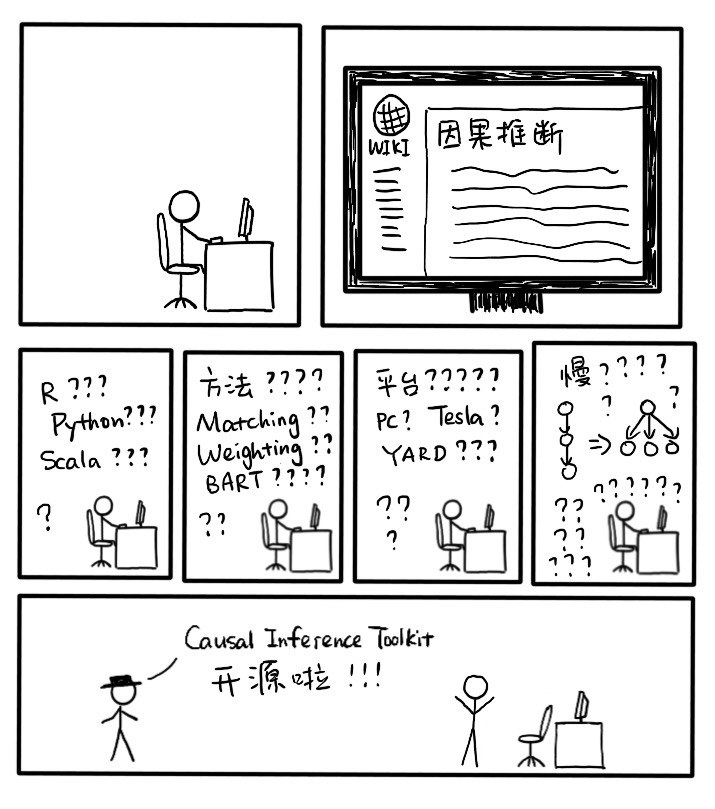 WIKI
因果推断
R ???
Python???
Scala ???
?
方法 ????
Matching ??
Weighting ??
BART ????
??
平台?????
PC? Tesla?
YARD ???
??
?
慢????
?
?
⇒
??????
??
??
???
Causal Inference Toolkit
开源啦!!!